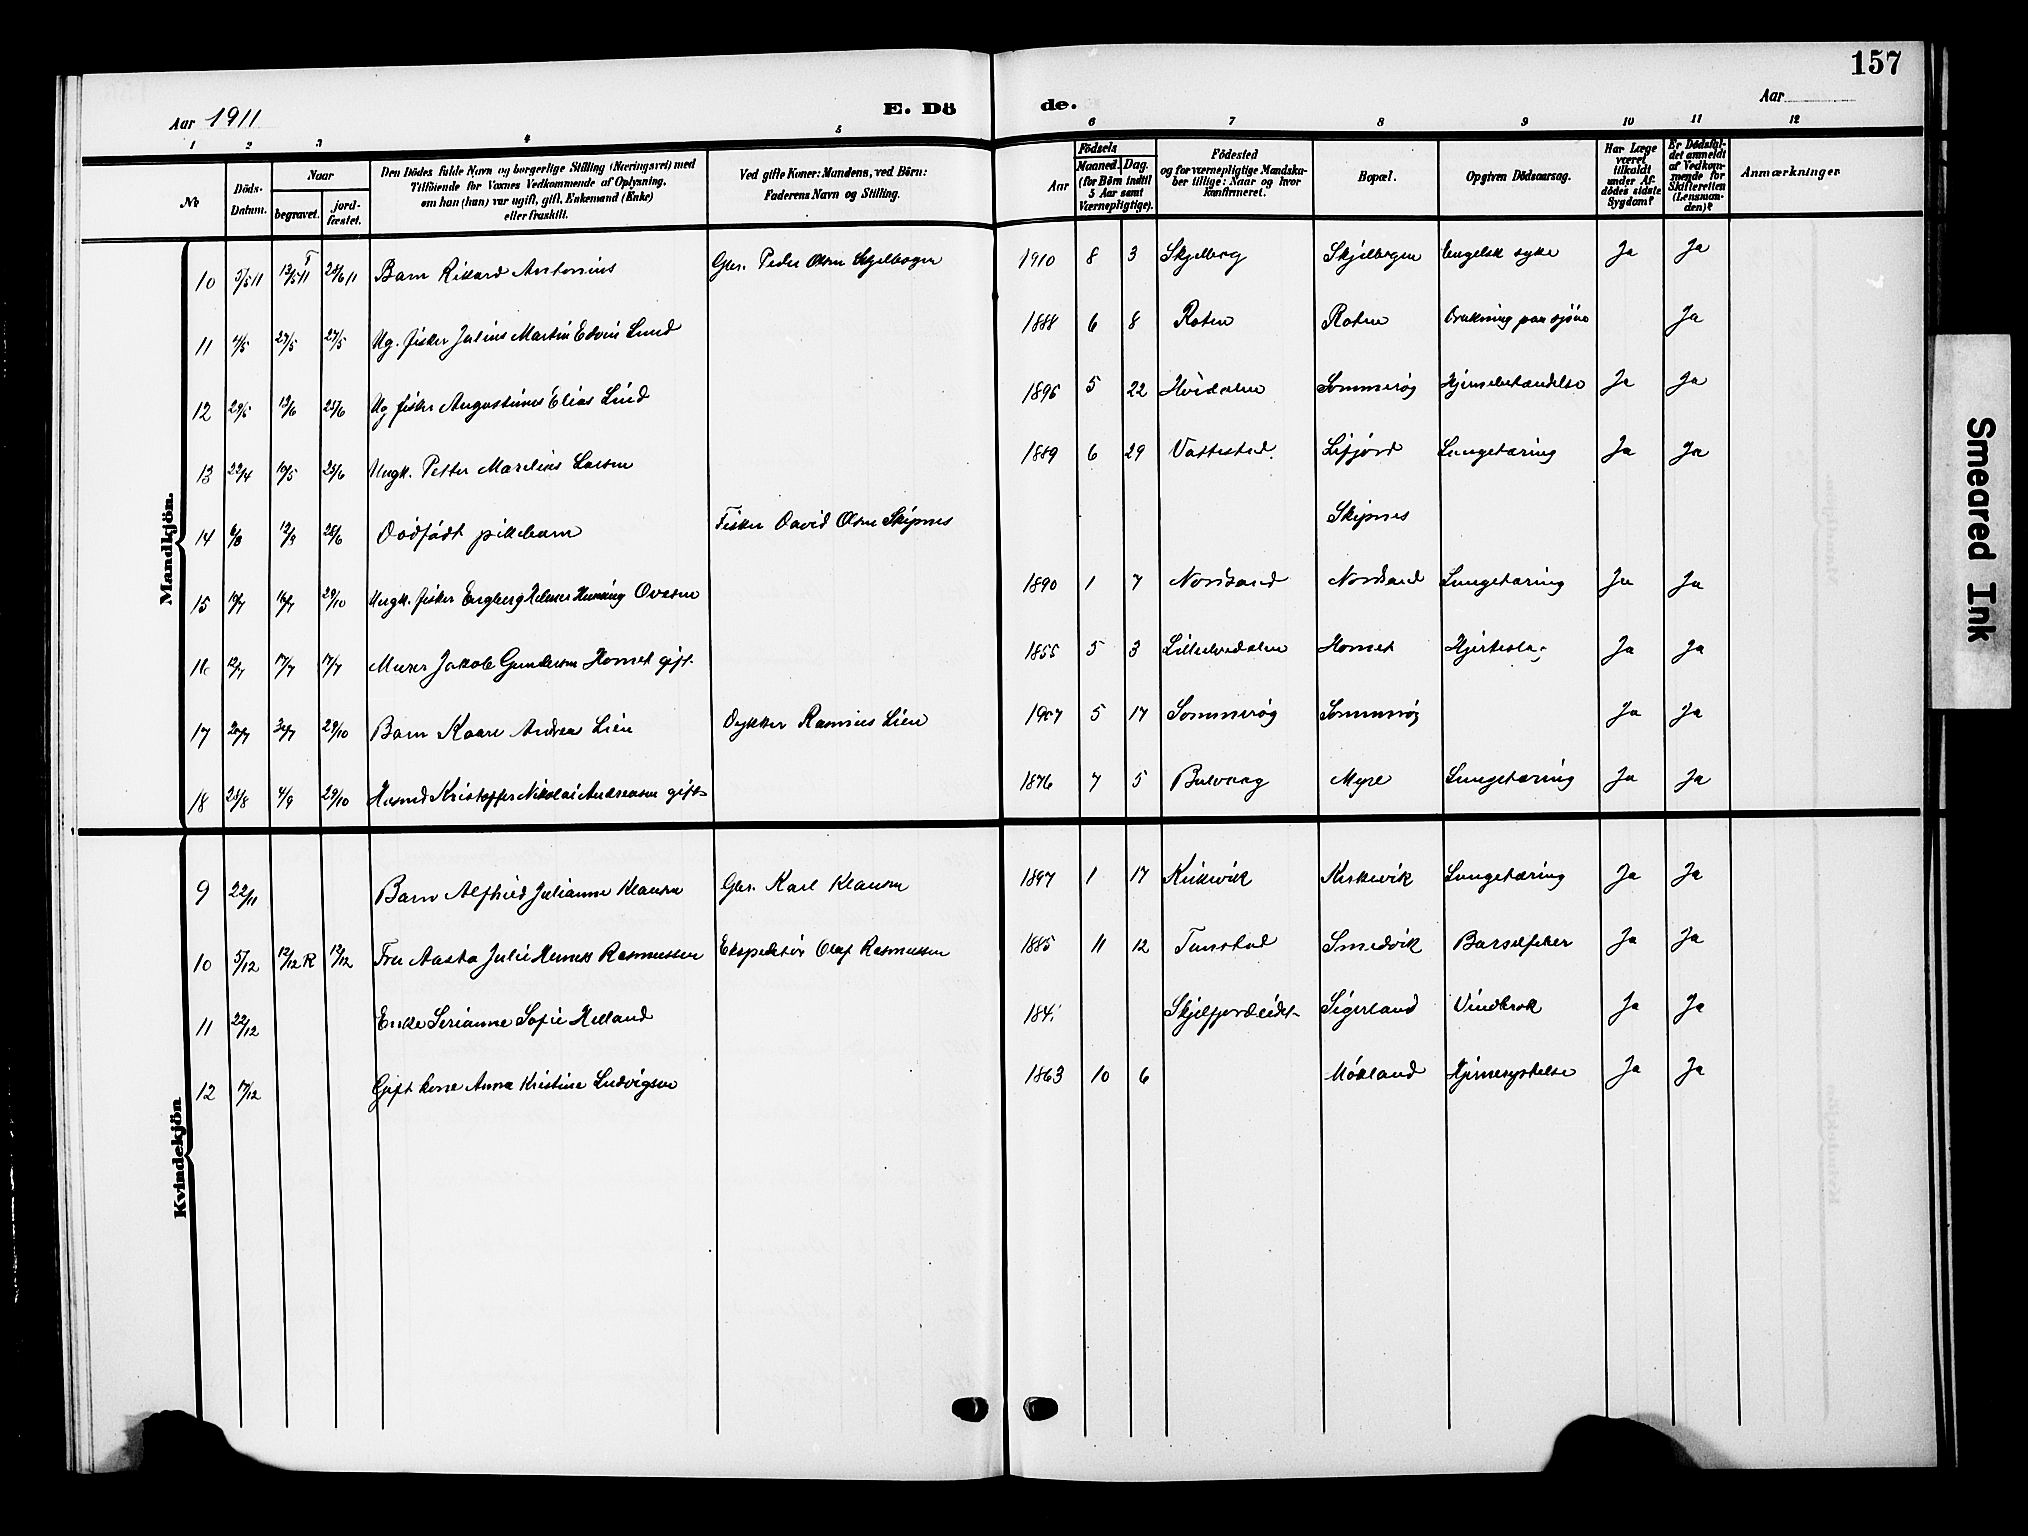 157
Aar 1911
E. Dö de.
Aar
1 2 3 4 5 6 7 8 9 10 11 12
№
Döds-Datum.
Naar
begravet.
jord-fæstet.
Den Dödes fulde Navn og borgerlige Stilling (Næringsvei) med
Tilföiende for Voxnes Vedkommende af Oplysning,
om han (hun) var ugift, gift, Enkemand (Enke)
eller fraskilt.
Ved gifte Koner: Mandens, ved Börn:
Faderens Navn og Stilling.
Födsels
Aar
Maaned. Dag.
(for Börn indtil
5 Aar samt
Værnepligtige).
Födested
og for værnepligtige Mandska-
ber tillige: Naar og hvor
konfirmeret.
Bopæl.
Opgiven Dödsaarsag.
Har Læge
været
tilkaldt
under Af-
dödes sidste
Sygdom?
Er Dödsfal-
det anmeldt
af Vedkom-
mende for
Skifteretten
(Lensman-
den)?
Anmærkninger
Mandkjön.
10 3/5 11 13/5 11 25/6 11 Barn Rikard Antonius Gbr. Peder Olsen Skjelbogen 1910 8 3 Skjelbog Skjelbogen Engelsk syke Ja Ja
11 4/5 27/5 27/5 Ug. fisker Julius Martin Edvin Lund 1888 6 8 Roten Roten Drukning paa sjöen Ja
12 29/5 12/6 25/6 Ug fisker Augustinus Elias Lind 1896 5 22 Hovdalen Sommerøy Hjernebetændelse Ja Ja
13 22/4 10/5 25/6 Ungk. Petter Marelius Larsen 1889 6 29 Vottestad Lifjord Lungetæring Ja Ja
14 6/8 12/9 28/6 Dødfødt pikebarn Fisker David Olsen Skipnes Skipnes
15 10/7 16/7 29/10 Ungk. fisker Engberg Helmer Henning Ovesen 1890 1 7 Nordsand Nordsand Lungetæring Ja Ja
16 12/7 17/7 17/7 Murer Jakob Gundersen Hornet gift. 1855 5 3 Hornet Hjerteslag Ja Ja
17 30/7 29/10 Barn Kaare Andreas Lien Dykker Rasmus Lien 1907 5 17 Sommerøy Sommerøy Ja Ja
18 25/8 4/9 29/10 Husmd Kristoffer Nikolai Andreasen gift 1876 7 5 Bulvaag Myre Lungetæring Ja Ja
Kvindekjön
9 22/11 Barn Alfhild Julianne Klausen Gbr. Karl Klausen 1897 1 17 Kirkevik Kirkevik Lungetæring Ja Ja
10 5/12 12/12 R 12/12 Fru Aasta Julie Hernes Rasmussen Ekspeditør Olaf Rasmussen 1885 11 12 Tunstad Smedvik Barselfeber Ja Ja
11 22/12 Enke Serianne Sofie Helland 184 Skjelfjordeidet Sigerland Vindbrok Ja Ja
12 17/12 Gift kone Anna Kristine Ludvigsen 1863 10 6 Møkland Hjernerystelse Ja Ja
Smeared Ink